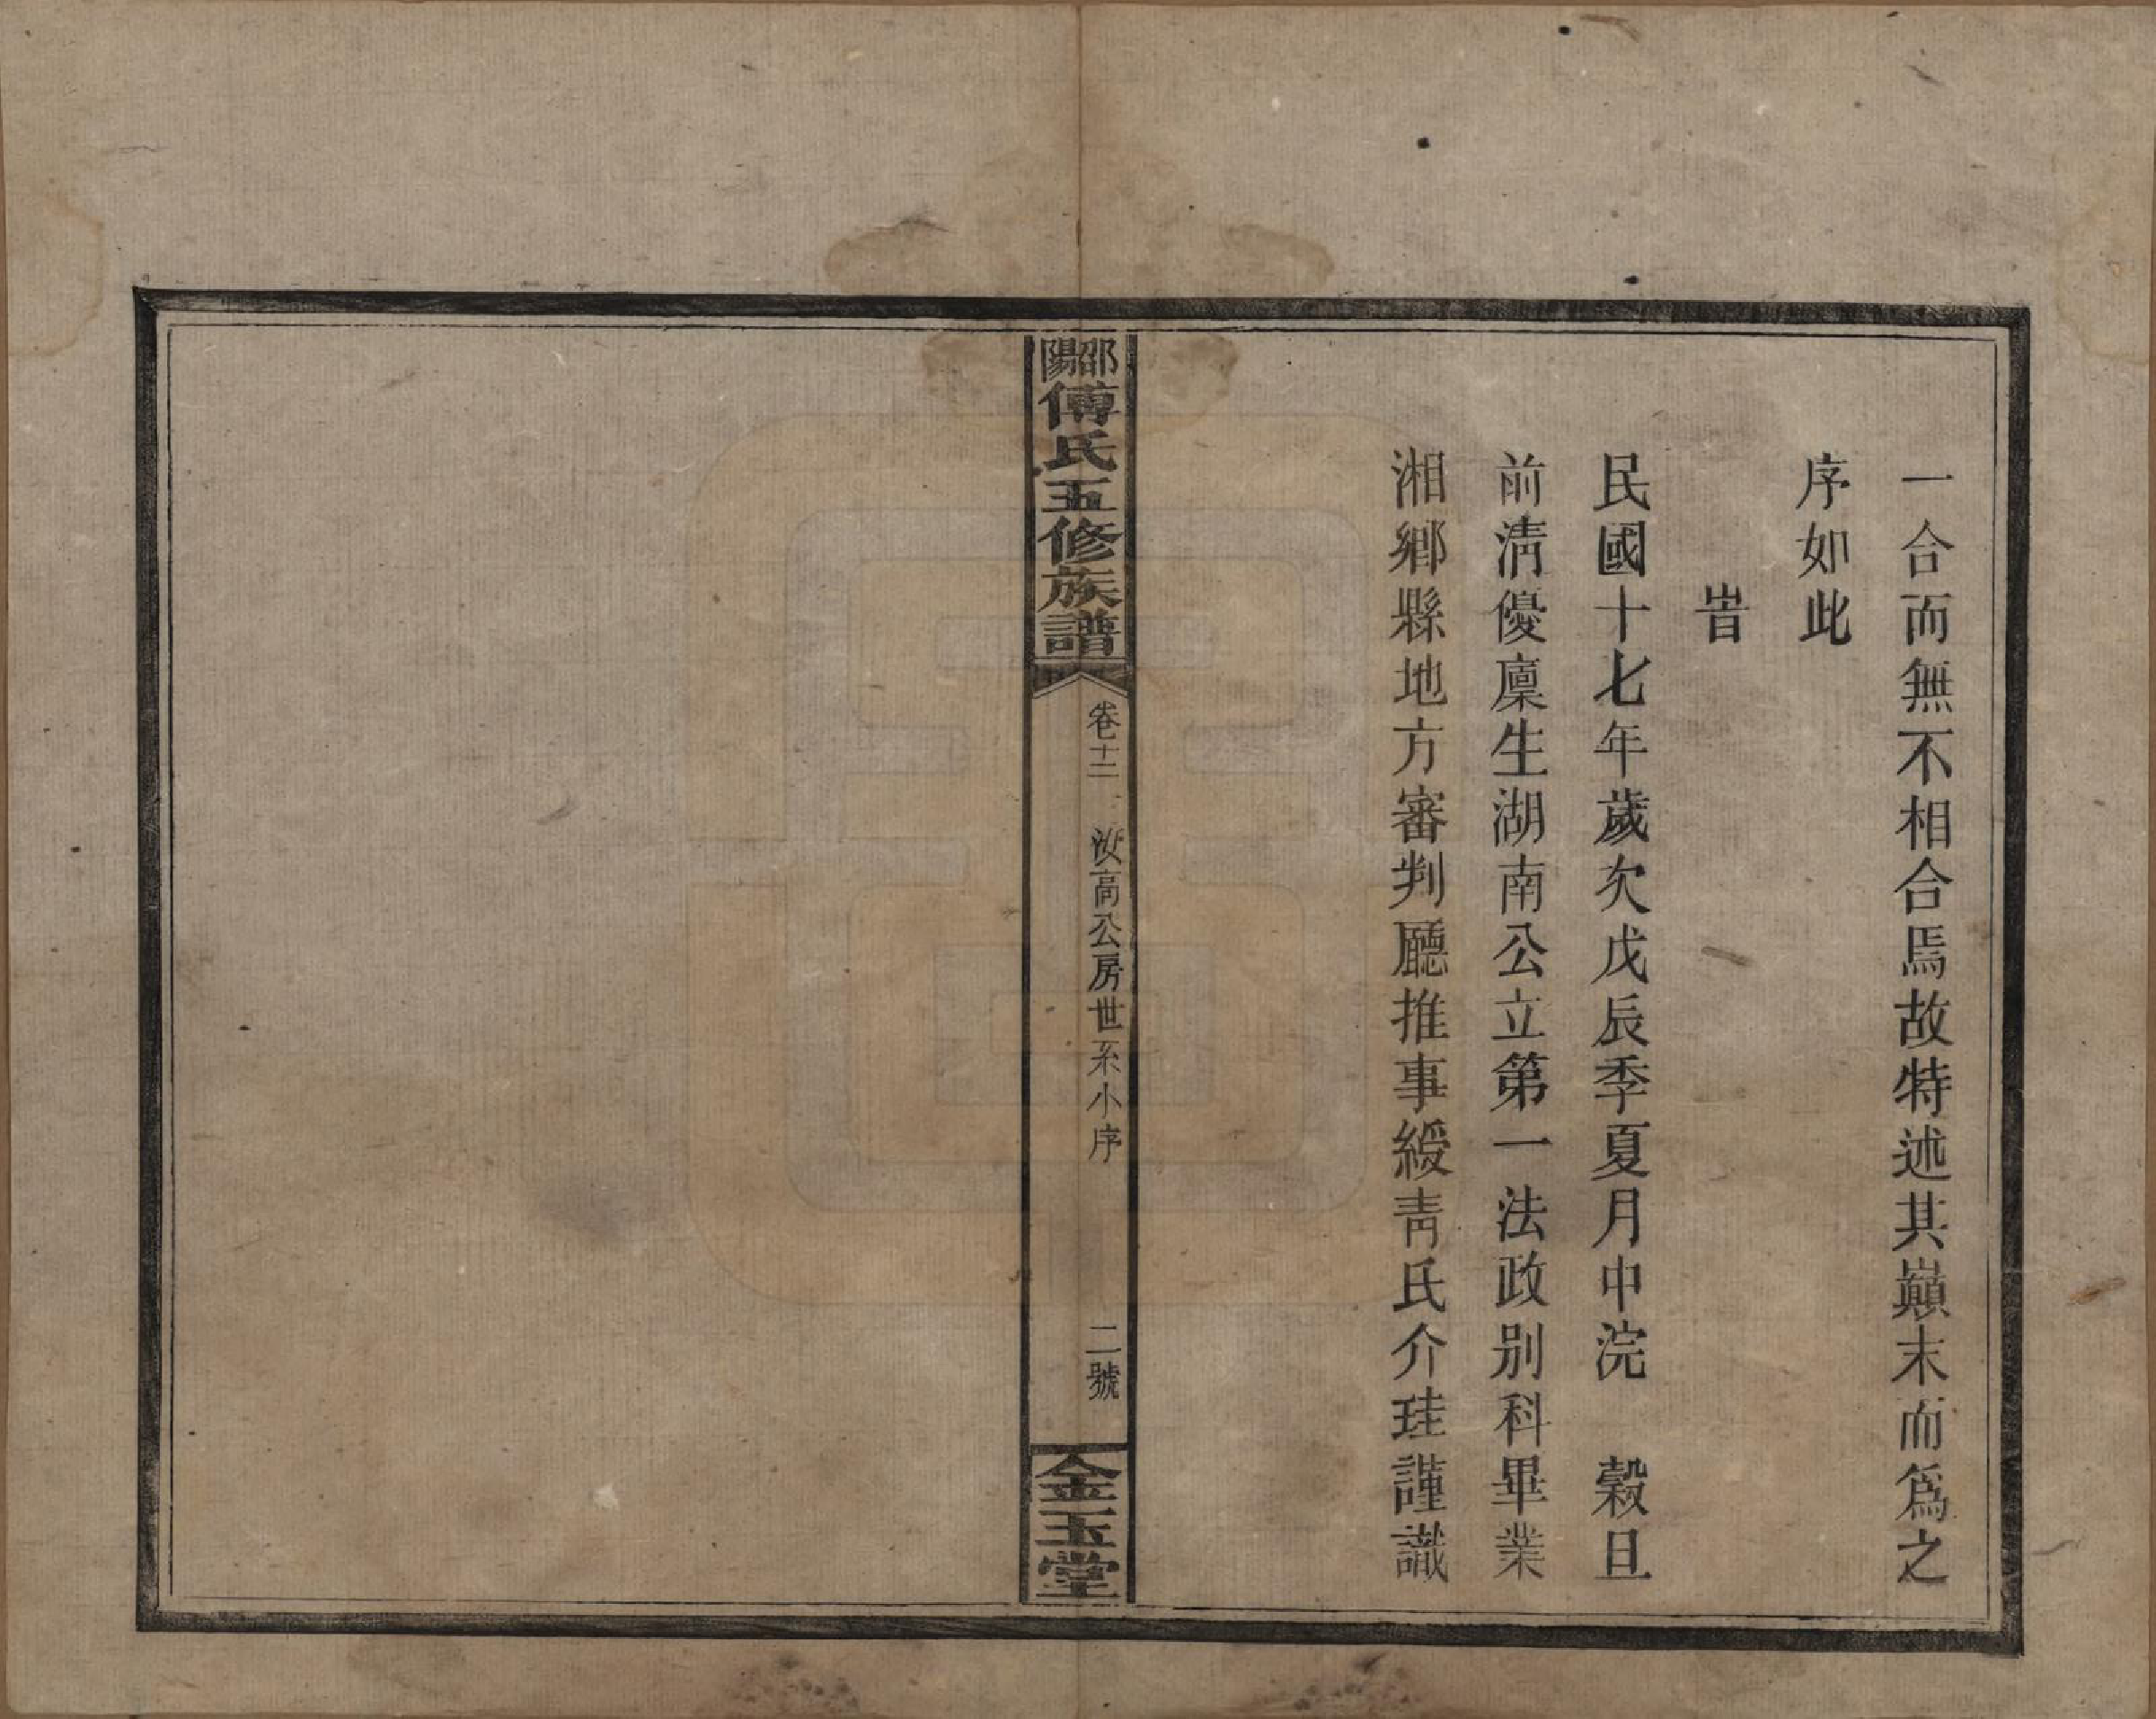 一合而無不相合焉故特述其巔末而爲之
序如此
旹
民國十七年歲次戊辰季夏月中浣　穀旦
前淸優廩生湖南公立第一法政別科畢業
湘鄉縣地方審判廳推事綬靑氏介珪謹識
邵陽傅氏五修族譜
卷十二　汝高公房世系小序
二號
金玉堂